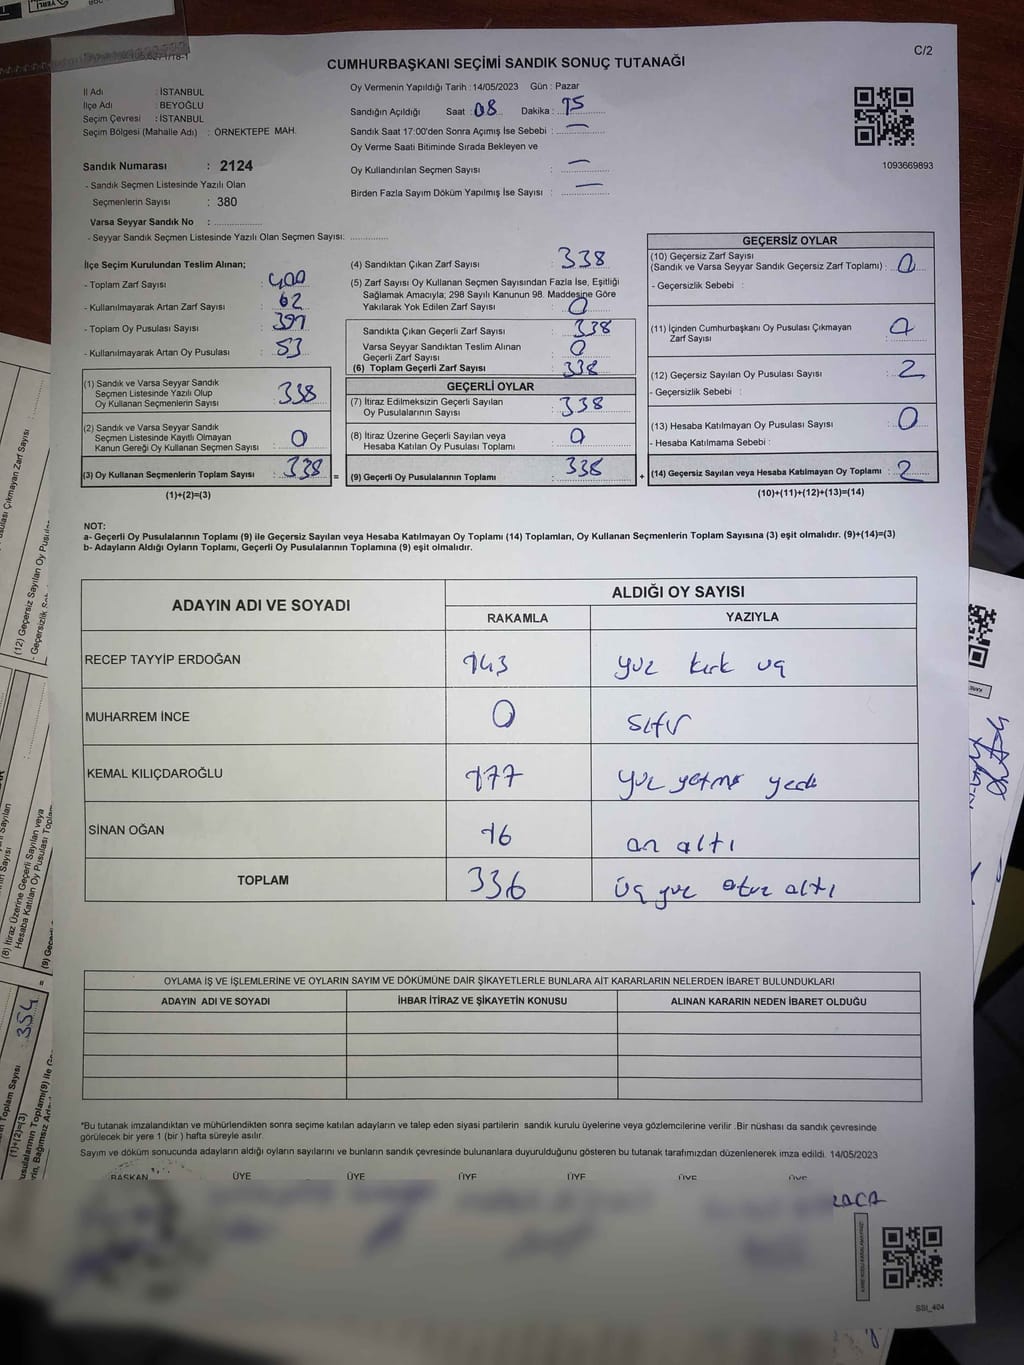 C/2
CUMHURBAŞKANI SEÇİMİ SANDIK SONUÇ TUTANAĞI
İl Adı : İSTANBUL
İlçe Adı : BEYOĞLU
Seçim Çevresi : İSTANBUL
Seçim Bölgesi (Mahalle Adı) : ÖRNEKTEPE MAH.
Sandık Numarası : 2124
- Sandık Seçmen Listesinde Yazılı Olan
Seçmenlerin Sayısı : 380
Varsa Seyyar Sandık No : ................
- Seyyar Sandık Seçmen Listesinde Yazılı Olan Seçmen Sayısı: .............
Oy Vermenin Yapıldığı Tarih : 14/05/2023 Gün : Pazar
Sandığın Açıldığı Saat : 08 Dakika : 15
Sandık Saat 17:00'den Sonra Açımış İse Sebebi : —
Oy Verme Saati Bitiminde Sırada Bekleyen ve
Oy Kullandırılan Seçmen Sayısı : —
Birden Fazla Sayım Döküm Yapılmış İse Sayısı : —
1093669893
İlçe Seçim Kurulundan Teslim Alınan;
- Toplam Zarf Sayısı : 400
- Kullanılmayarak Artan Zarf Sayısı : 62
- Toplam Oy Pusulası Sayısı : 391
- Kullanılmayarak Artan Oy Pusulası : 53
(1) Sandık ve Varsa Seyyar Sandık
Seçmen Listesinde Yazılı Olup
Oy Kullanan Seçmenlerin Sayısı : 338
(2) Sandık ve Varsa Seyyar Sandık
Seçmen Listesinde Kayıtlı Olmayan
Kanun Gereği Oy Kullanan Seçmen Sayısı : 0
(3) Oy Kullanan Seçmenlerin Toplam Sayısı : 338 =
(1)+(2)=(3)
(4) Sandıktan Çıkan Zarf Sayısı : 338
(5) Zarf Sayısı Oy Kullanan Seçmen Sayısından Fazla İse, Eşitliği
Sağlamak Amacıyla; 298 Sayılı Kanunun 98. Maddesine Göre
Yakılarak Yok Edilen Zarf Sayısı : 0
Sandıkta Çıkan Geçerli Zarf Sayısı : 338
Varsa Seyyar Sandıktan Teslim Alınan
Geçerli Zarf Sayısı : 0
(6) Toplam Geçerli Zarf Sayısı : 338
GEÇERLİ OYLAR
(7) İtiraz Edilmeksizin Geçerli Sayılan
Oy Pusulalarının Sayısı : 338
(8) İtiraz Üzerine Geçerli Sayılan veya
Hesaba Katılan Oy Pusulası Toplamı : 0
(9) Geçerli Oy Pusulalarının Toplamı : 338 +
GEÇERSİZ OYLAR
(10) Geçersiz Zarf Sayısı
(Sandık ve Varsa Seyyar Sandık Geçersiz Zarf Toplamı) : 0
- Geçersizlik Sebebi :
(11) İçinden Cumhurbaşkanı Oy Pusulası Çıkmayan
Zarf Sayısı : 0
(12) Geçersiz Sayılan Oy Pusulası Sayısı : 2
- Geçersizlik Sebebi :
(13) Hesaba Katılmayan Oy Pusulası Sayısı : 0
- Hesaba Katılmama Sebebi :
(14) Geçersiz Sayılan veya Hesaba Katılmayan Oy Toplamı : 2
(10)+(11)+(12)+(13)=(14)
NOT:
a- Geçerli Oy Pusulalarının Toplamı (9) ile Geçersiz Sayılan veya Hesaba Katılmayan Oy Toplamı (14) Toplamları, Oy Kullanan Seçmenlerin Toplam Sayısına (3) eşit olmalıdır. (9)+(14)=(3)
b- Adayların Aldığı Oyların Toplamı, Geçerli Oy Pusulalarının Toplamına (9) eşit olmalıdır.
ADAYIN ADI VE SOYADI ALDIĞI OY SAYISI
RAKAMLA YAZIYLA
RECEP TAYYİP ERDOĞAN 143 yüz kırk üç
MUHARREM İNCE 0 sıfır
KEMAL KILIÇDAROĞLU 177 yüz yetmiş yedi
SİNAN OĞAN 16 on altı
TOPLAM 336 üç yüz otuz altı
OYLAMA İŞ VE İŞLEMLERİNE VE OYLARIN SAYIM VE DÖKÜMÜNE DAİR ŞİKAYETLERLE BUNLARA AİT KARARLARIN NELERDEN İBARET BULUNDUKLARI
ADAYIN ADI VE SOYADI İHBAR İTİRAZ VE ŞİKAYETİN KONUSU ALINAN KARARIN NEDEN İBARET OLDUĞU
*Bu tutanak imzalandıktan ve mühürlendikten sonra seçime katılan adayların ve talep eden siyasi partilerin sandık kurulu üyelerine veya gözlemcilerine verilir .Bir nüshası da sandık çevresinde
görülecek bir yere 1 (bir ) hafta süreyle asılır.
Sayım ve döküm sonucunda adayların aldığı oyların sayılarını ve bunların sandık çevresinde bulunanlara duyurulduğunu gösteren bu tutanak tarafımızdan düzenlenerek imza edildi. 14/05/2023
BAŞKAN ÜYE ÜYE ÜYE ÜYE ÜYE ÜYE
SSI_404
(12) Geçersiz Sayılan Oy Pusulası
354
(1)+(2)=(3)